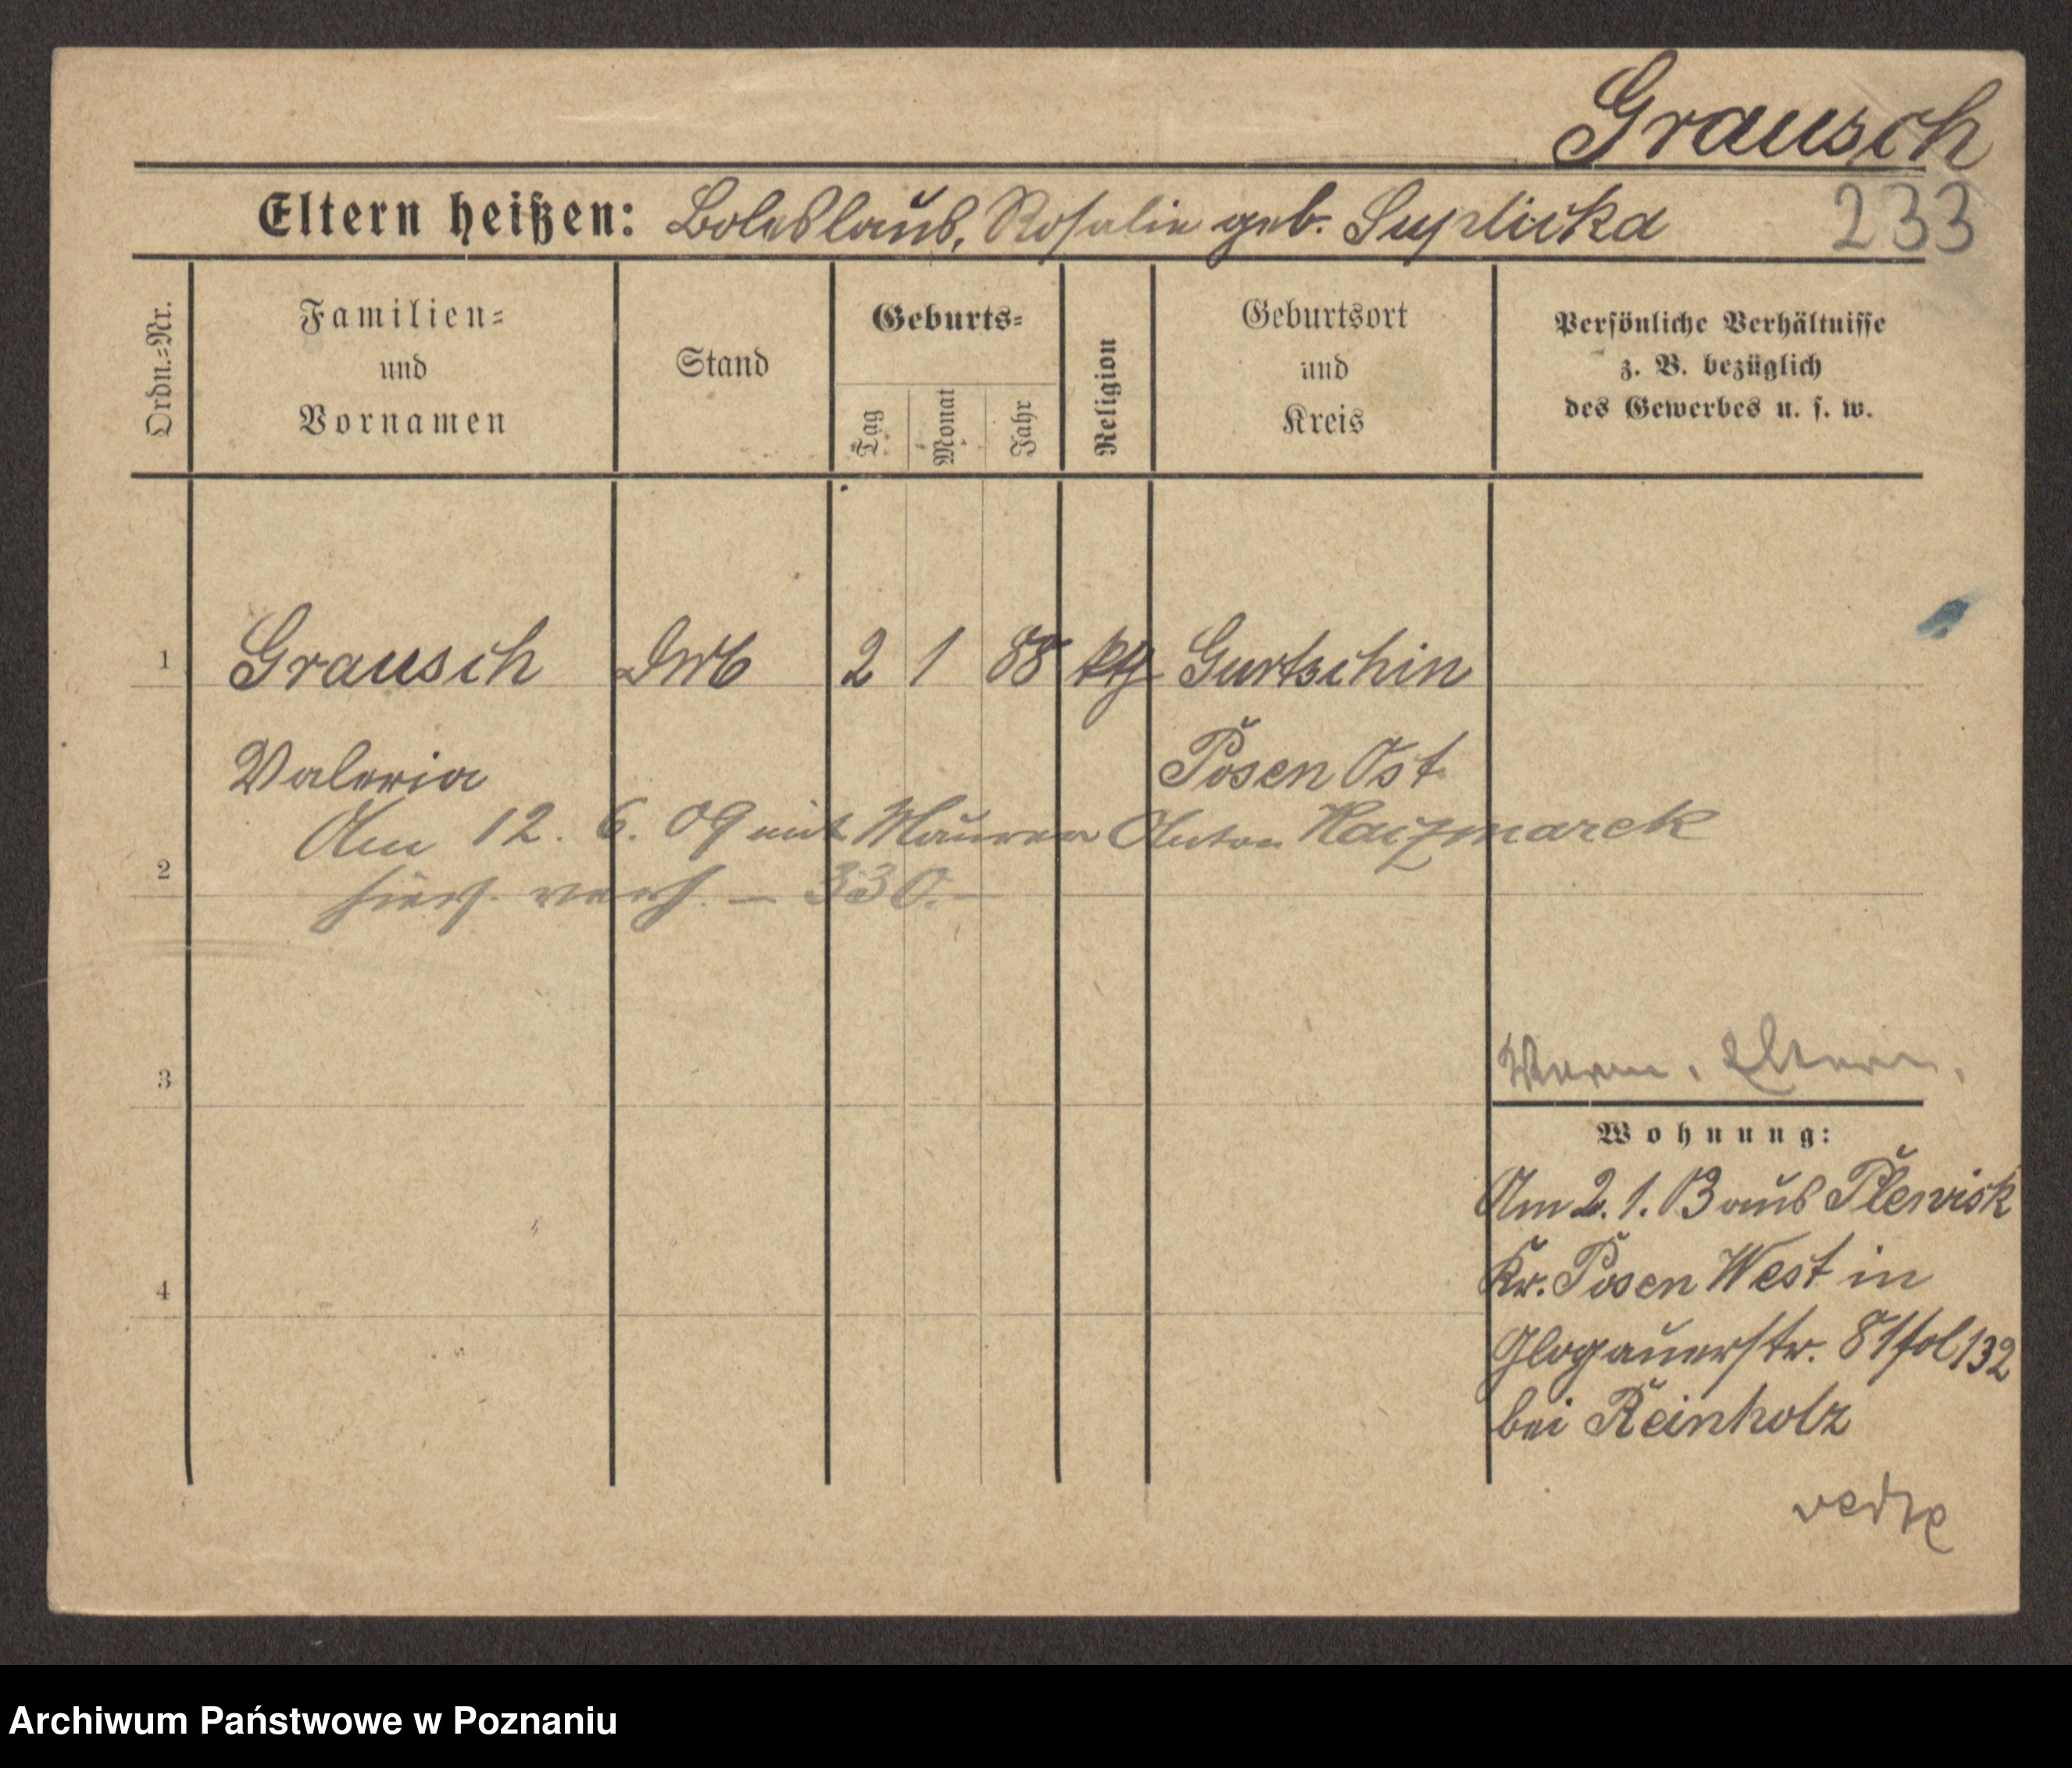 Grausch
Eltern heißen: Boleslaus, Rosalie geb. Suplicka 233
Ordn.=Nr.
Familien=
und
Vornamen
Stand
Geburts=
Tag
Monat
Jahr
Religion
Geburtsort
und
Kreis
Persönliche Verhältnisse
z. B. bezüglich
des Gewerbes u. s. w.
1 Grausch 2 1 88 kth Gurtschin
Valeria Posen Ost
Am 12. 6. 09 mit Maurer Anton Kaczmarek
2
hier verh. – 330. –
3
Eltern.
Wohnung:
Am 2. 1. 03 aus Plewisk
4 Kr. Posen West in
Glogauerstr. 81 fol 132
bei Reinholz
Archiwum Państwowe w Poznaniu